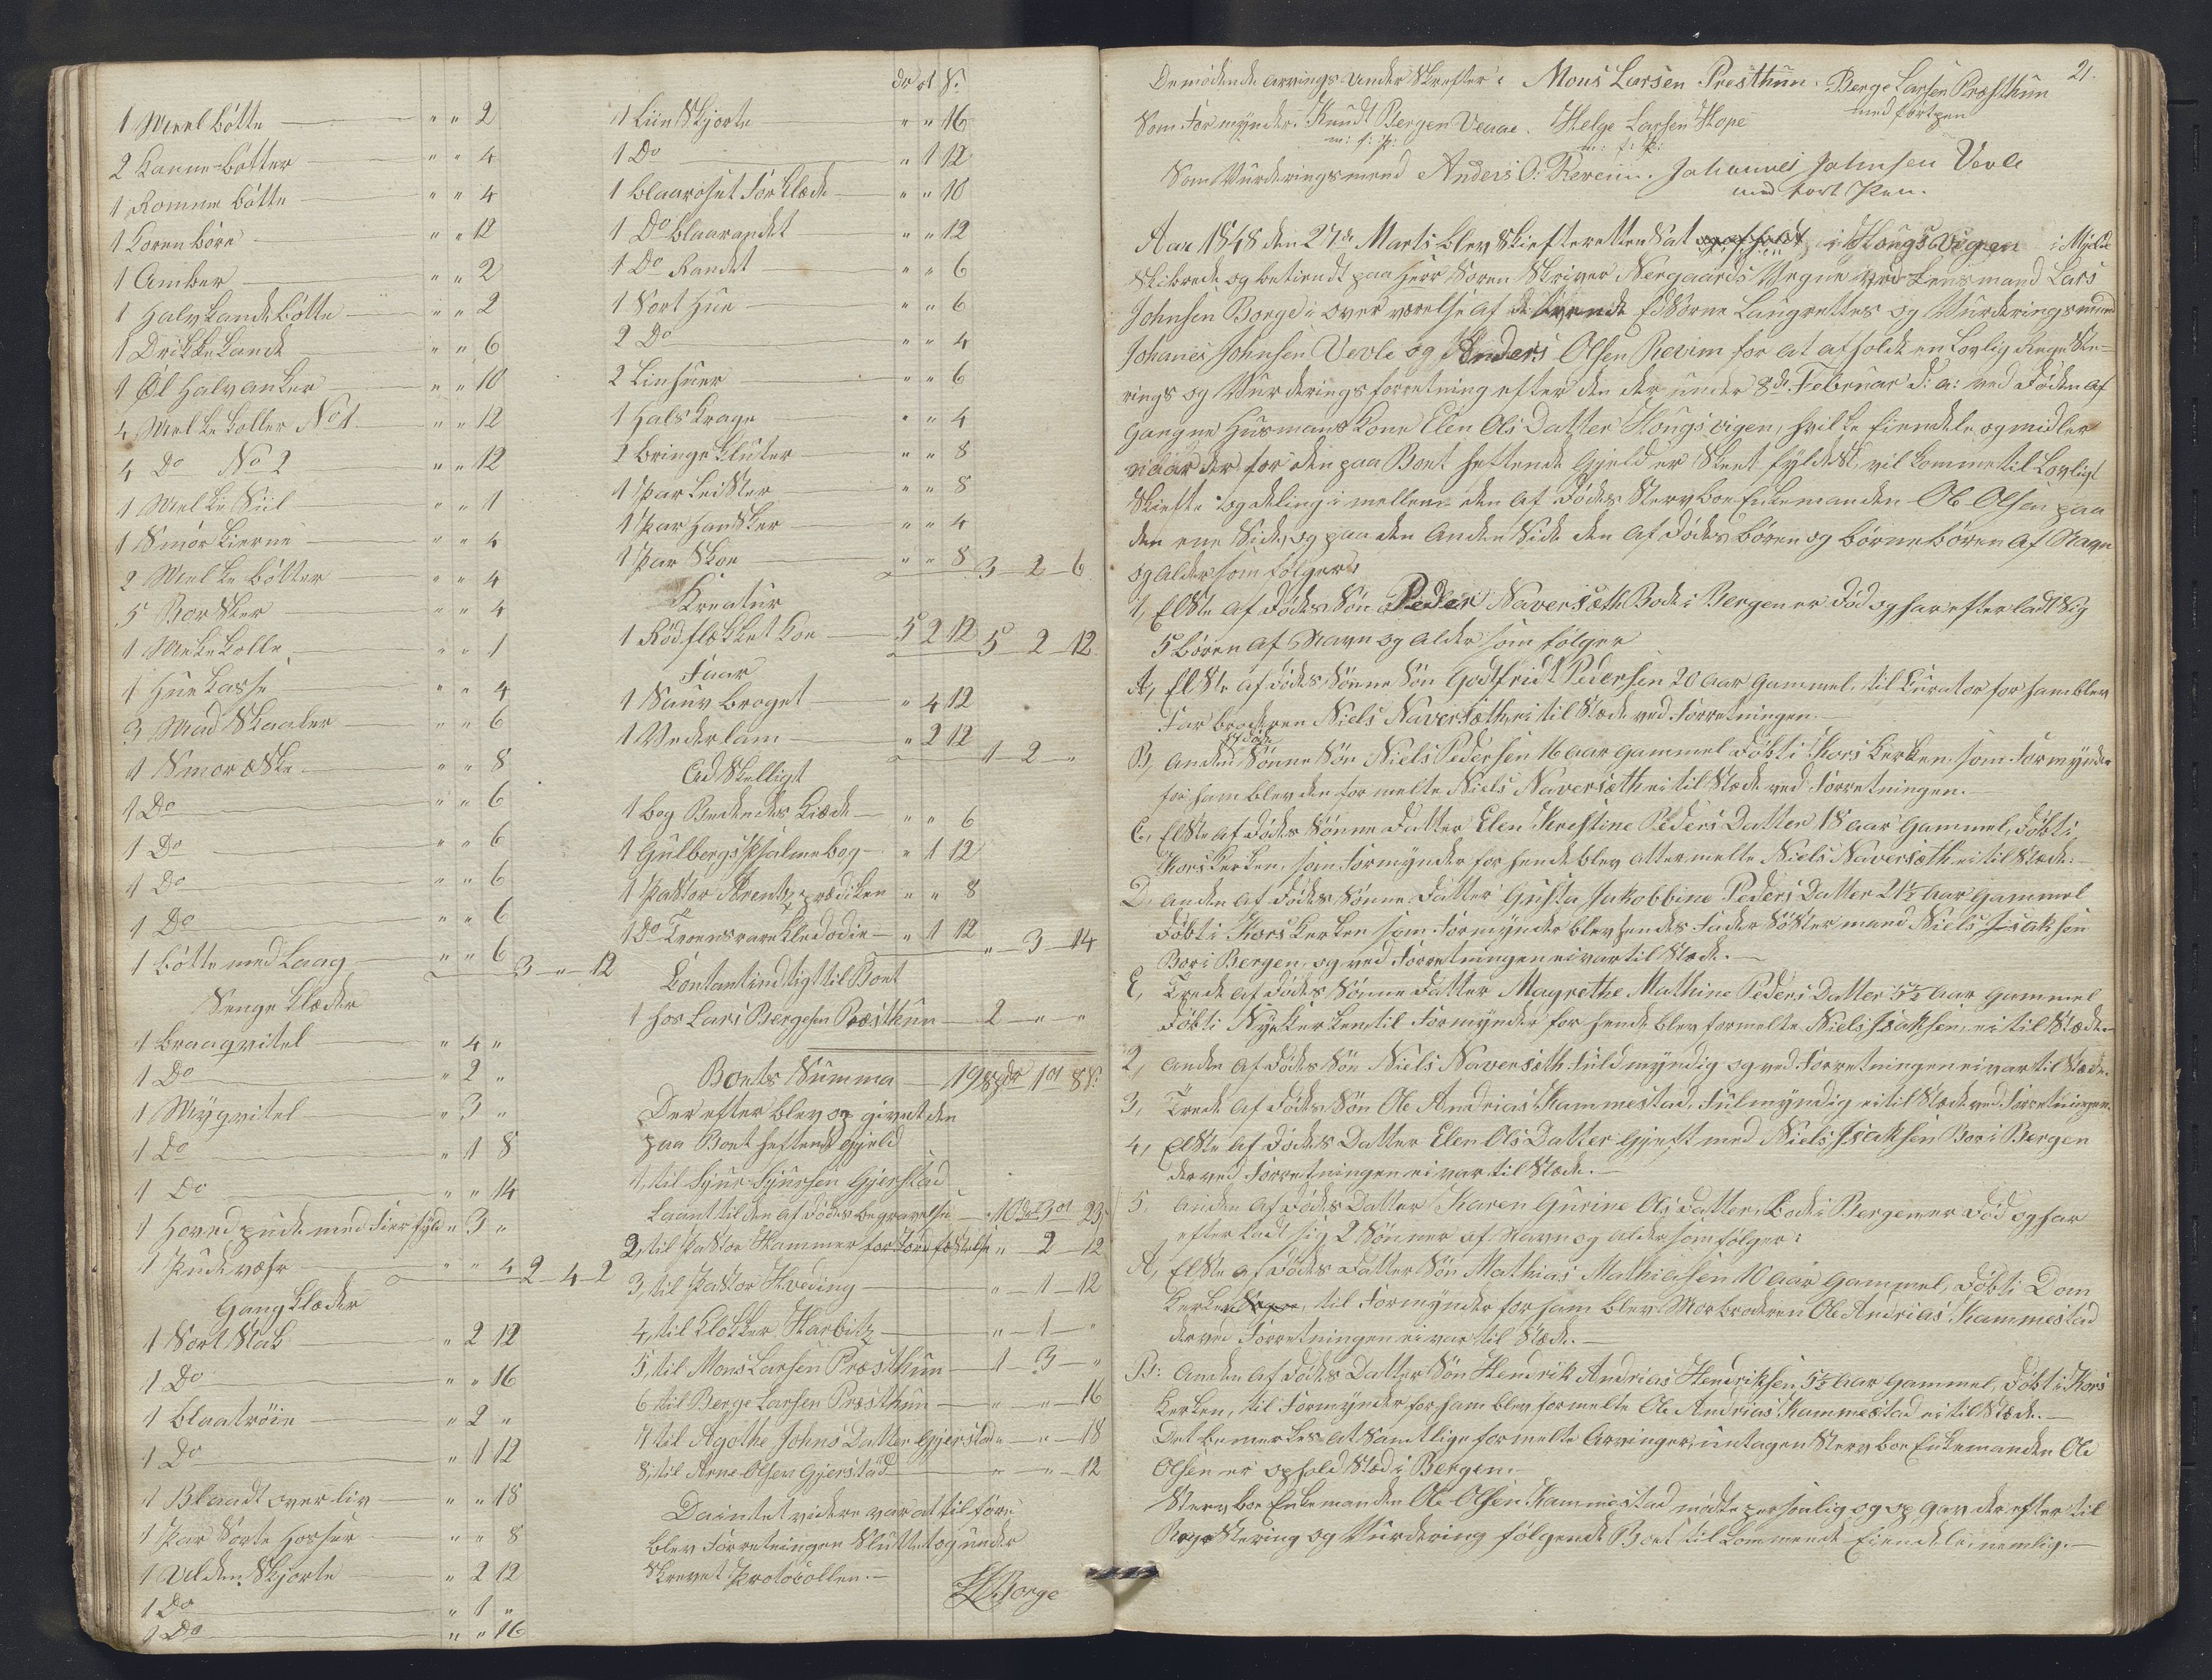 1 Meel bötte " " 2
2 Kanne-bötter " " 4
1 Romme bötte " " 4
1 Korenböre " " 12
1 Amber " " 2
1 Halvkande bötte " " 2
1 Drikkekande " " 6
1 Öl halvanker " " 10
4 Melkekoller No 1 " " 12
4 Do No 2 " " 12
1 Melke Siil " " 1
1 Smörkierne " " 4
2 Melkebötter " " 4
5 Borsker " " 4
1 Melkekolle " " 1
1 Huekasse " " 4
3 Madskaaler " " 6
1 Smoræske " " 8
1 Do " " 6
1 Do " " 6
1 Do " " 6
1 Do " " 6
1 bötte med Laag " " 6 3 " 12
Senge klæder
1 braaqvitel " 4 "
1 Do " 2 "
1 Mygqvitel " 3 "
1 Do " 1 8
1 Do " " 14
1 Hovedpude med Fierfyld " 3 "
1 Pudevæhr " " 4 2 4 2
Gangklæder
1 Sort Stak " 2 12
1 Do " " 16
1 blaatröie " 2 "
1 Do " 1 12
1 Blaadt overliv " " 18
1 Par Sorte Hosser " " 8
1 Ulden Skjorte " 2 12
1 Do " 1 "
1 Do " " 16
dr ort S.
1 Liin Skjorte " " 16
1 Do " 1 12
1 blaaroset Forklæde " " 10
1 Do blaarandet " " 12
1 Do Randet " " 6
1 Sort Hue " " 6
2 Do " " 4
2 Linhuer " " 6
1 Halskrage " " 4
2 bringeKluter " " 8
1 Par Leister " " 8
1 Par Hansker " " 4
1 Par Skoe " " 8 3 2 6
Kreatur
1 Rödflækket Koe 5 2 12 5 2 12
Faar
1 Sauv broget " 4 12
1 Vederlam " 2 12 1 2 "
Adskelligt
1 bog Bedendes Kiæde " " 6
1 Gulbergs Psalmebog " 1 12
1 Pastor Brentz prædiken " " 8
1 Do Troens rare Kledodie " 1 12 " 3 14
Contant indtigt til Boet
1 hos Lars Bergesen Præsthun 2 " "
Boets Summa 19 Spdr 1 ort 8 S.
Derefter blev og givet den
paa Boet heftende Gjeld
1, til Sjur Sjursen Gjerstad
Laant til den Afdödes begravelse 10 dr 3 ort 23
2, til Pastor Hammer for Jordfæstelse " 2 12
3, til Pastor Hveding " 1 12
4, til Klokker Harbitz " 1 "
5, til Mons Larsen Præsthun 1 3 "
6 til Berge Larsen Præsthun " " 16
7 til Agothe Johns Datter Gjerstad " " 18
8, til Arne Olsen Gjerstad " " 12
Da intet videre var at tilföre
blev Forretningen Sluttet og under
Skrevet Protocollen.
LJBorge
21.
De mödende Arvings underskrefter: Mons Larsen Presthun. Berge Larsen Præsthun
med fört pen
Som Formynder. Knudt Bergen Veaae. Helge Larsen Hope
m: f: P: m: f: P:
Som Vurderingsmend Anders O: Reveim. Johannes Johnsen Vevle
med fort Pen.
Aar 1848 den 27de Marts blev Skiefteretten Sat og afholdt i Kongsvigen i Mjelde
Skibrede og betiendt paa Herr Soren Skriver Nergaards Vegne ved Lensmand Lars
Johnsen Borge i overværelse af de tvende Edsorne Laugrettes og Vurderingsmænd
Johanes Johnsen Vevle og Anders Olsen Revim for at afholde en Lovlig Rege Ste-
rings og Vurderings forretning efter den der under 8de Februar d: a: ved Döden af
gangne Husmans Kone Elen Ols Datter Kongsvigen, hvilke Eiendele og midler
naar der for den paa Boet heftende Gjeld er Skeet fyldest, vil komme til Lovligt
Skiefte og deling i mellem den Af Dödes Stervboe Enkemanden Ole Olsen paa
den ene Side, og paa den Anden Side den Afdödes bören og börnebören Af Navn
og Alder som fölger:
1, Elste Afdödes Sön Peder Naversæth Bode i Bergen er Död og har efterladt Sig
5 bören Af Navn og Alder som fölger
A, Elste afdödes Sönne Sön Godtfridt Pedersen 20 Aar Gammel, til Kurator for ham blev
Farbroderen Niels Naversæth, ei til Stæde ved Forretningen.
B, Anden Afdödes Sönne Sön Niels Pedersen 16 aar Gammel Döbt i Korskerken, som Formynder
for ham blev den formelte Niels Naversæth ei til Stæde ved Forretningen.
C, Elste Afdödes Sönne Datter Elen Kristine Peders Datter 18 aar Gammel, döbt i
Korskerken, som Formynder for hende blev Attermelte Niels Naversæth ei til Stæde.
D, Anden Afdödes Sönne Datter Gusta Jakobbine Peders Datter 21½ Aar Gammel
Döbt i Korskerken som Formynder blev hendes Fader Söstermand Niels Isaksen
Bor i Bergen, og ved Forretningen ei var til Stæde.
E, Trede Afdödes Sönne Datter Magrethe Mathine Peders Datter 5½ Aar Gammel
Döbt i Nykerken til Formynder for hende blev formelte Niels Isaksen, ei til Stæde
2, Anden Afdödes Sön Niels Naversæth Fuldmyndig og ved Forretningen ei var til Stæde.
3, Trede Afdödes Sön Ole Andrias Hammestad, Fulmyndig ei til Stæde ved Forretningen.
4, Elste Afdödes Datter Elen Ols Datter Gjeft med Niels Isaksen Bor i Bergen
der ved Forretningen ei var til Stæde.
5, Anden Afdödes Datter Karen Gurine Ols Datter, Bode i Bergen er Död og har
efterladt sig 2 Sönner af Navn og Alder som fölger:
A, Elste Afdödes Datter Sön Mathias Mathiesen 10 Aar Gammel, Döbt i Dom
Kerken, til Formynder for ham blev Morbroderen Ole Andrias Hammestad
der ved Forretningen ei var til Stæde.
B: Anden Afdödes Datter Sön Hendrik Andrias Hendriksen, 5½ Aar Gammel, Döbt i Kors
Kerken, til Formynder for ham blev formelte Ole Andrias Hammestad ei til Stæde.
Det bemerkes at Samtlige formelte Arvinger, untagen Stervboe Enkemanden Ole
Olsen er ophold Stæd i Bergen.
Stervboe Enkemanden Ole Olsen Hammestad mödte personlig og opgav derefter til
RegeStering og Vurdering fölgende Boet tilkommende Eiendele, nemlig.